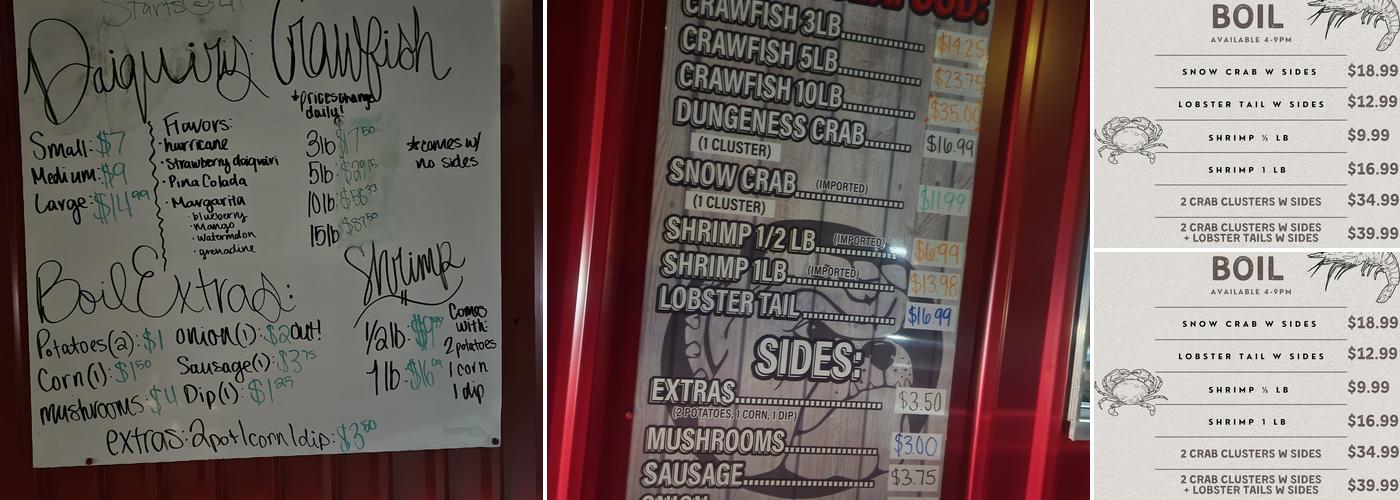 Starts @ 4!
Daiquiris
Small: $7
Medium: $9
Large: $14.99
Flavors:
· hurricane
· Strawberry daiquiri
· Pina Colada
· Margarita
· blueberry
· Mango
· Watermelon
· grenadine
Crawfish
*prices change
daily!
3lb $17.50
5lb $29.15
10lb $58.33
15lb $87.50
*comes w/
no sides
Boil Extras:
Potatoes(2): $1 onion(1): $2 out!
Corn(1): $1.50 Sausage(1): $3.75
mushrooms: $4 Dip(1): $1.25
extras: 2pot 1corn 1dip: $3.50
Shrimp
1/2lb: $9.99
1lb:
Comes
with:
2 potatoes
1 corn
1 dip
CRAWFISH 3LB $14.25
CRAWFISH 5LB $23.75
CRAWFISH 10LB $35.00
DUNGENESS CRAB $16.99
(1 CLUSTER)
SNOW CRAB (IMPORTED) $11.99
(1 CLUSTER)
SHRIMP 1/2 LB (IMPORTED) $6.99
SHRIMP 1LB (IMPORTED) $13.98
LOBSTER TAIL $16.99
SIDES:
EXTRAS $3.50
(2 POTATOES, 1 CORN, 1 DIP)
MUSHROOMS $3.00
SAUSAGE $3.75
ONION
BOIL
AVAILABLE 4-9PM
SNOW CRAB W SIDES $18.99
LOBSTER TAIL W SIDES $12.99
SHRIMP ½ LB $9.99
SHRIMP 1 LB $16.99
2 CRAB CLUSTERS W SIDES $34.99
2 CRAB CLUSTERS W SIDES
+ LOBSTER TAILS W SIDES $39.99
BOIL
AVAILABLE 4-9PM
SNOW CRAB W SIDES $18.99
LOBSTER TAIL W SIDES $12.99
SHRIMP ½ LB $9.99
SHRIMP 1 LB $16.99
2 CRAB CLUSTERS W SIDES $34.99
2 CRAB CLUSTERS W SIDES
+ LOBSTER TAILS W SIDES $39.99